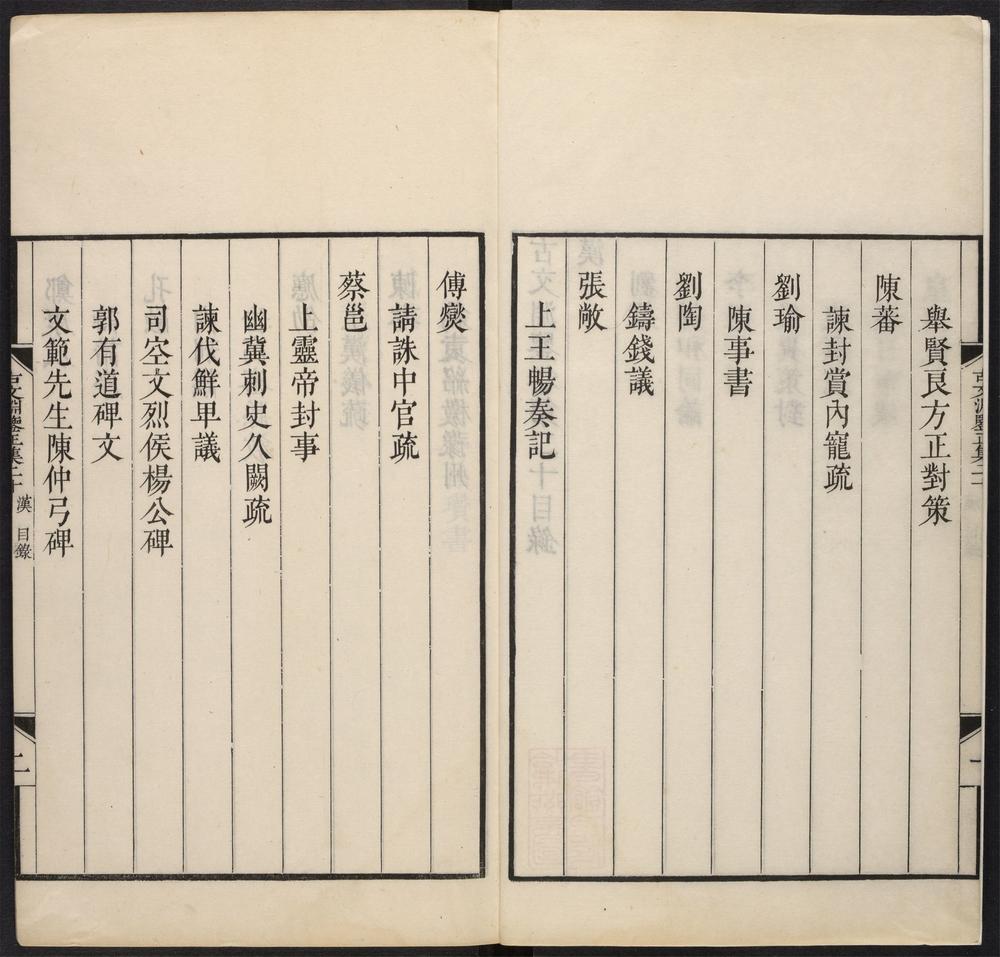 舉賢良方正對策
陳蕃
諫封賞內寵疏
劉瑜
陳事書
劉陶
鑄錢議
張敞
上王暢奏記
傅燮
請誅中官疏
蔡邕
上靈帝封事
幽冀刺史久闕疏
諫伐鮮卑議
司空文烈侯楊公碑
郭有道碑文
文範先生陳仲弓碑
漢 目錄
二